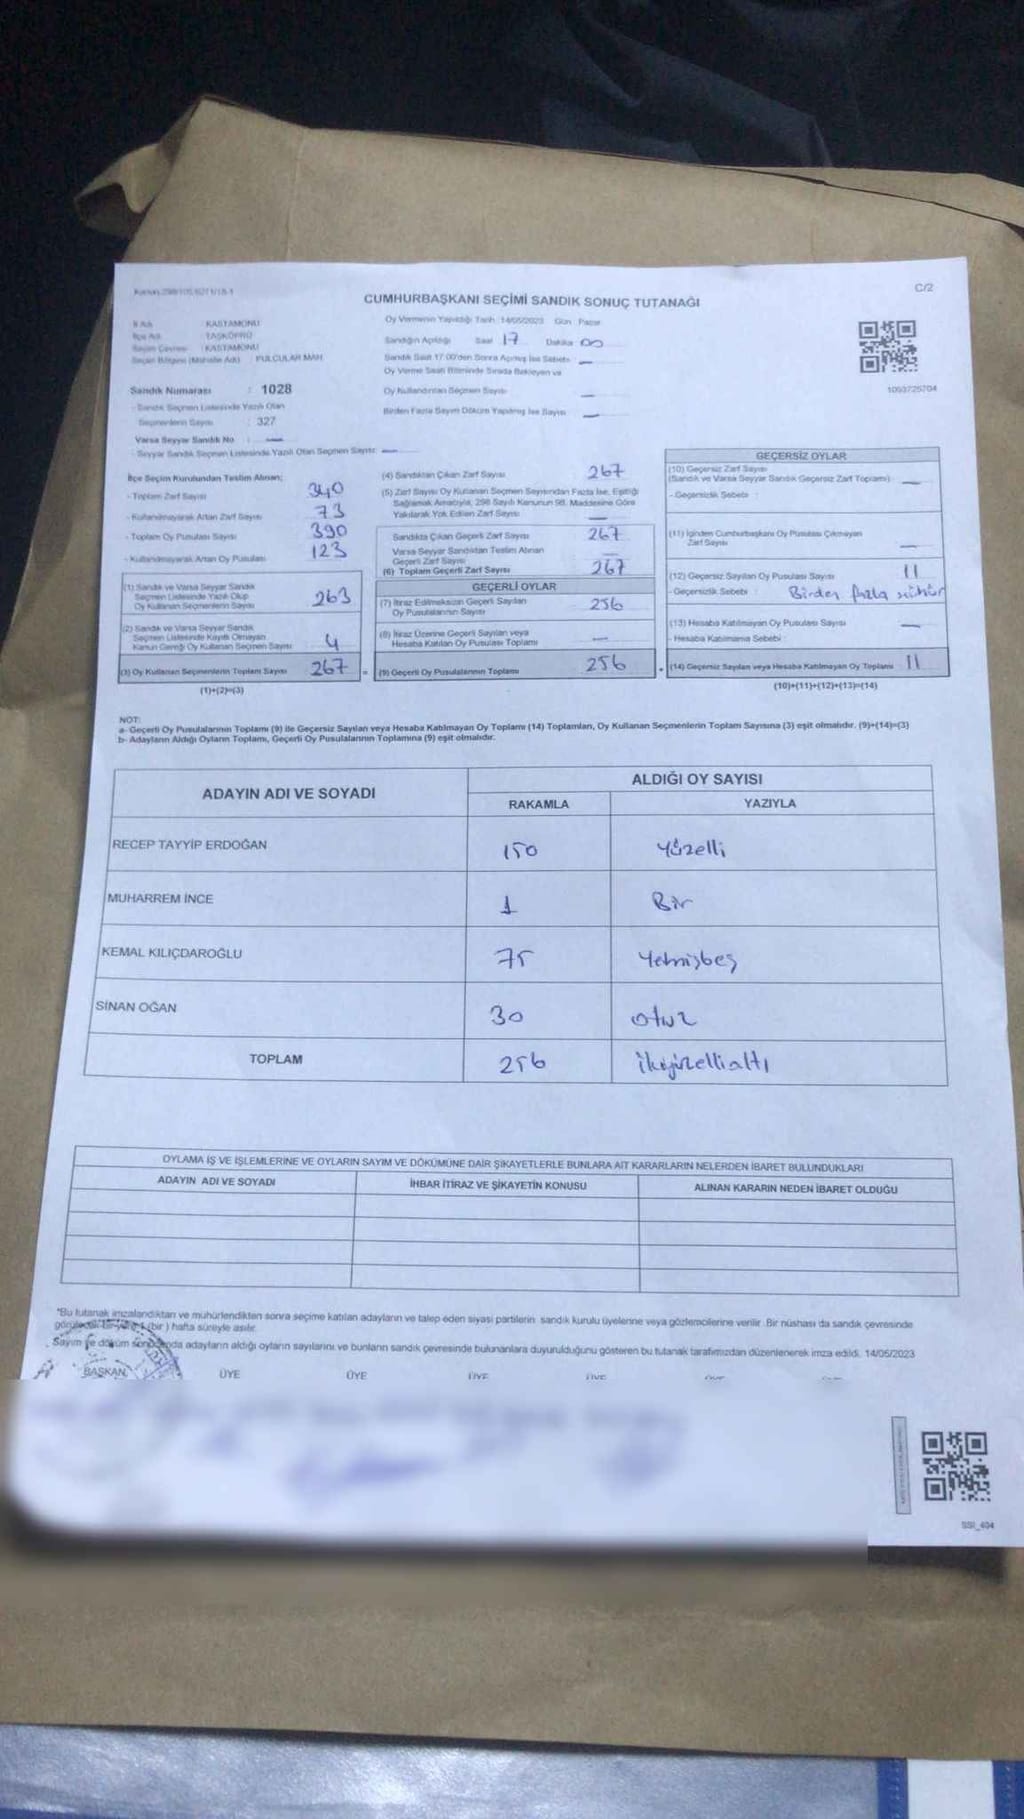 C/2
CUMHURBAŞKANI SEÇİMİ SANDIK SONUÇ TUTANAĞI
İl Adı KASTAMONU
İlçe Adı TAŞKÖPRÜ
Seçim Çevresi : KASTAMONU
Seçim Bölgesi (Mahalle Adı) PULCULAR MAH.
Sandık Numarası : 1028
- Sandık Seçmen Listesinde Yazılı Olan
Seçmenlerin Sayısı : 327
Varsa Seyyar Sandık No : —
- Seyyar Sandık Seçmen Listesinde Yazılı Olan Seçmen Sayısı: —
Oy Vermenin Yapıldığı Tarih :14/05/2023 Gün: Pazar
Sandığın Açıldığı Saat 17 Dakika 00
Sandık Saat 17:00'den Sonra Açılmış İse Sebebi: —
Oy Verme Saati Bitiminde Sırada Bekleyen ve
Oy Kullandırılan Seçmen Sayısı: —
Birden Fazla Sayım Döküm Yapılmış İse Sayısı —
1093725704
İlçe Seçim Kurulundan Teslim Alınan;
- Toplam Zarf Sayısı 340
- Kullanılmayarak Artan Zarf Sayısı 73
- Toplam Oy Pusulası Sayısı 390
- Kullanılmayarak Artan Oy Pusulası 123
(1) Sandık ve Varsa Seyyar Sandık
Seçmen Listesinde Yazılı Olup
Oy Kullanan Seçmenlerin Sayısı 263
(2) Sandık ve Varsa Seyyar Sandık
Seçmen Listesinde Kayıtlı Olmayan
Kanun Gereği Oy Kullanan Seçmen Sayısı 4
(3) Oy Kullanan Seçmenlerin Toplam Sayısı 267 =
(1)+(2)=(3)
(4) Sandıktan Çıkan Zarf Sayısı 267
(5) Zarf Sayısı Oy Kullanan Seçmen Sayısından Fazla İse, Eşitliği
Sağlamak Amacıyla, 298 Sayılı Kanunun 98. Maddesine Göre
Yakılarak Yok Edilen Zarf Sayısı —
Sandıkta Çıkan Geçerli Zarf Sayısı 267
Varsa Seyyar Sandıktan Teslim Alınan
Geçerli Zarf Sayısı —
(6) Toplam Geçerli Zarf Sayısı 267
GEÇERLİ OYLAR
(7) İtiraz Edilmeksizin Geçerli Sayılan
Oy Pusulalarının Sayısı 256
(8) İtiraz Üzerine Geçerli Sayılan veya
Hesaba Katılan Oy Pusulası Toplamı —
(9) Geçerli Oy Pusulalarının Toplamı 256 +
GEÇERSİZ OYLAR
(10) Geçersiz Zarf Sayısı
(Sandık ve Varsa Seyyar Sandık Geçersiz Zarf Toplamı) —
- Geçersizlik Sebebi :
(11) İçinden Cumhurbaşkanı Oy Pusulası Çıkmayan
Zarf Sayısı —
(12) Geçersiz Sayılan Oy Pusulası Sayısı 11
- Geçersizlik Sebebi : Birden fazla mühür
(13) Hesaba Katılmayan Oy Pusulası Sayısı —
- Hesaba Katılmama Sebebi :
(14) Geçersiz Sayılan veya Hesaba Katılmayan Oy Toplamı 11
(10)+(11)+(12)+(13)=(14)
NOT:
a- Geçerli Oy Pusulalarının Toplamı (9) ile Geçersiz Sayılan veya Hesaba Katılmayan Oy Toplamı (14) Toplamları, Oy Kullanan Seçmenlerin Toplam Sayısına (3) eşit olmalıdır. (9)+(14)=(3)
b- Adayların Aldığı Oyların Toplamı, Geçerli Oy Pusulalarının Toplamına (9) eşit olmalıdır.
ADAYIN ADI VE SOYADI
ALDIĞI OY SAYISI
RAKAMLA YAZIYLA
RECEP TAYYİP ERDOĞAN 150 Yüzelli
MUHARREM İNCE 1 Bir
KEMAL KILIÇDAROĞLU 75 Yetmişbeş
SİNAN OĞAN 30 otuz
TOPLAM 256 İkiyüzellialtı
OYLAMA İŞ VE İŞLEMLERİNE VE OYLARIN SAYIM VE DÖKÜMÜNE DAİR ŞİKAYETLERLE BUNLARA AİT KARARLARIN NELERDEN İBARET BULUNDUKLARI
ADAYIN ADI VE SOYADI İHBAR İTİRAZ VE ŞİKAYETİN KONUSU ALINAN KARARIN NEDEN İBARET OLDUĞU
*Bu tutanak imzalandıktan ve mühürlendikten sonra seçime katılan adayların ve talep eden siyasi partilerin sandık kurulu üyelerine veya gözlemcilerine verilir. Bir nüshası da sandık çevresinde
görülecek bir yere 1 (bir ) hafta süreyle asılır.
Sayım ve döküm sonucunda adayların aldığı oyların sayılarını ve bunların sandık çevresinde bulunanlara duyurulduğunu gösteren bu tutanak tarafımızdan düzenlenerek imza edildi. 14/05/2023
BAŞKAN ÜYE ÜYE ÜYE ÜYE
SSI_404